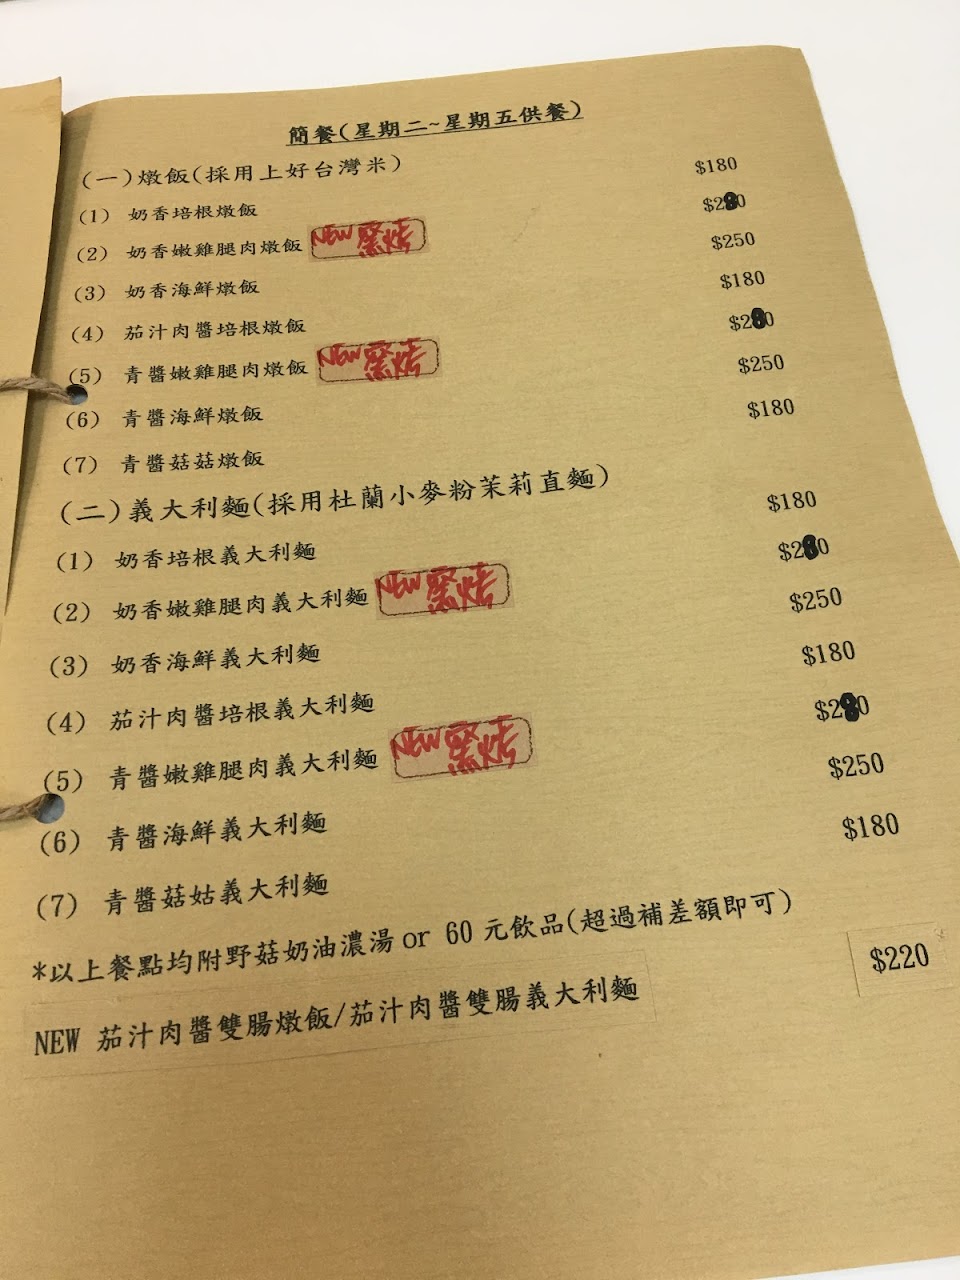 簡餐(星期二~星期五供餐)
(一)燉飯(採用上好台灣米)
(1) 奶香培根燉飯 $180
(2) 奶香嫩雞腿肉燉飯 NEW 窯烤 $280
(3) 奶香海鮮燉飯 $250
(4) 茄汁肉醬培根燉飯 $180
(5) 青醬嫩雞腿肉燉飯 NEW 窯烤 $280
(6) 青醬海鮮燉飯 $250
(7) 青醬菇菇燉飯 $180
(二)義大利麵(採用杜蘭小麥粉茉莉直麵)
(1) 奶香培根義大利麵 $180
(2) 奶香嫩雞腿肉義大利麵 NEW 窯烤 $280
(3) 奶香海鮮義大利麵 $250
(4) 茄汁肉醬培根義大利麵 $180
(5) 青醬嫩雞腿肉義大利麵 NEW 窯烤 $280
(6) 青醬海鮮義大利麵 $250
(7) 青醬菇姑義大利麵 $180
*以上餐點均附野菇奶油濃湯 or 60 元飲品(超過補差額即可)
NEW 茄汁肉醬雙腸燉飯/茄汁肉醬雙腸義大利麵 $220